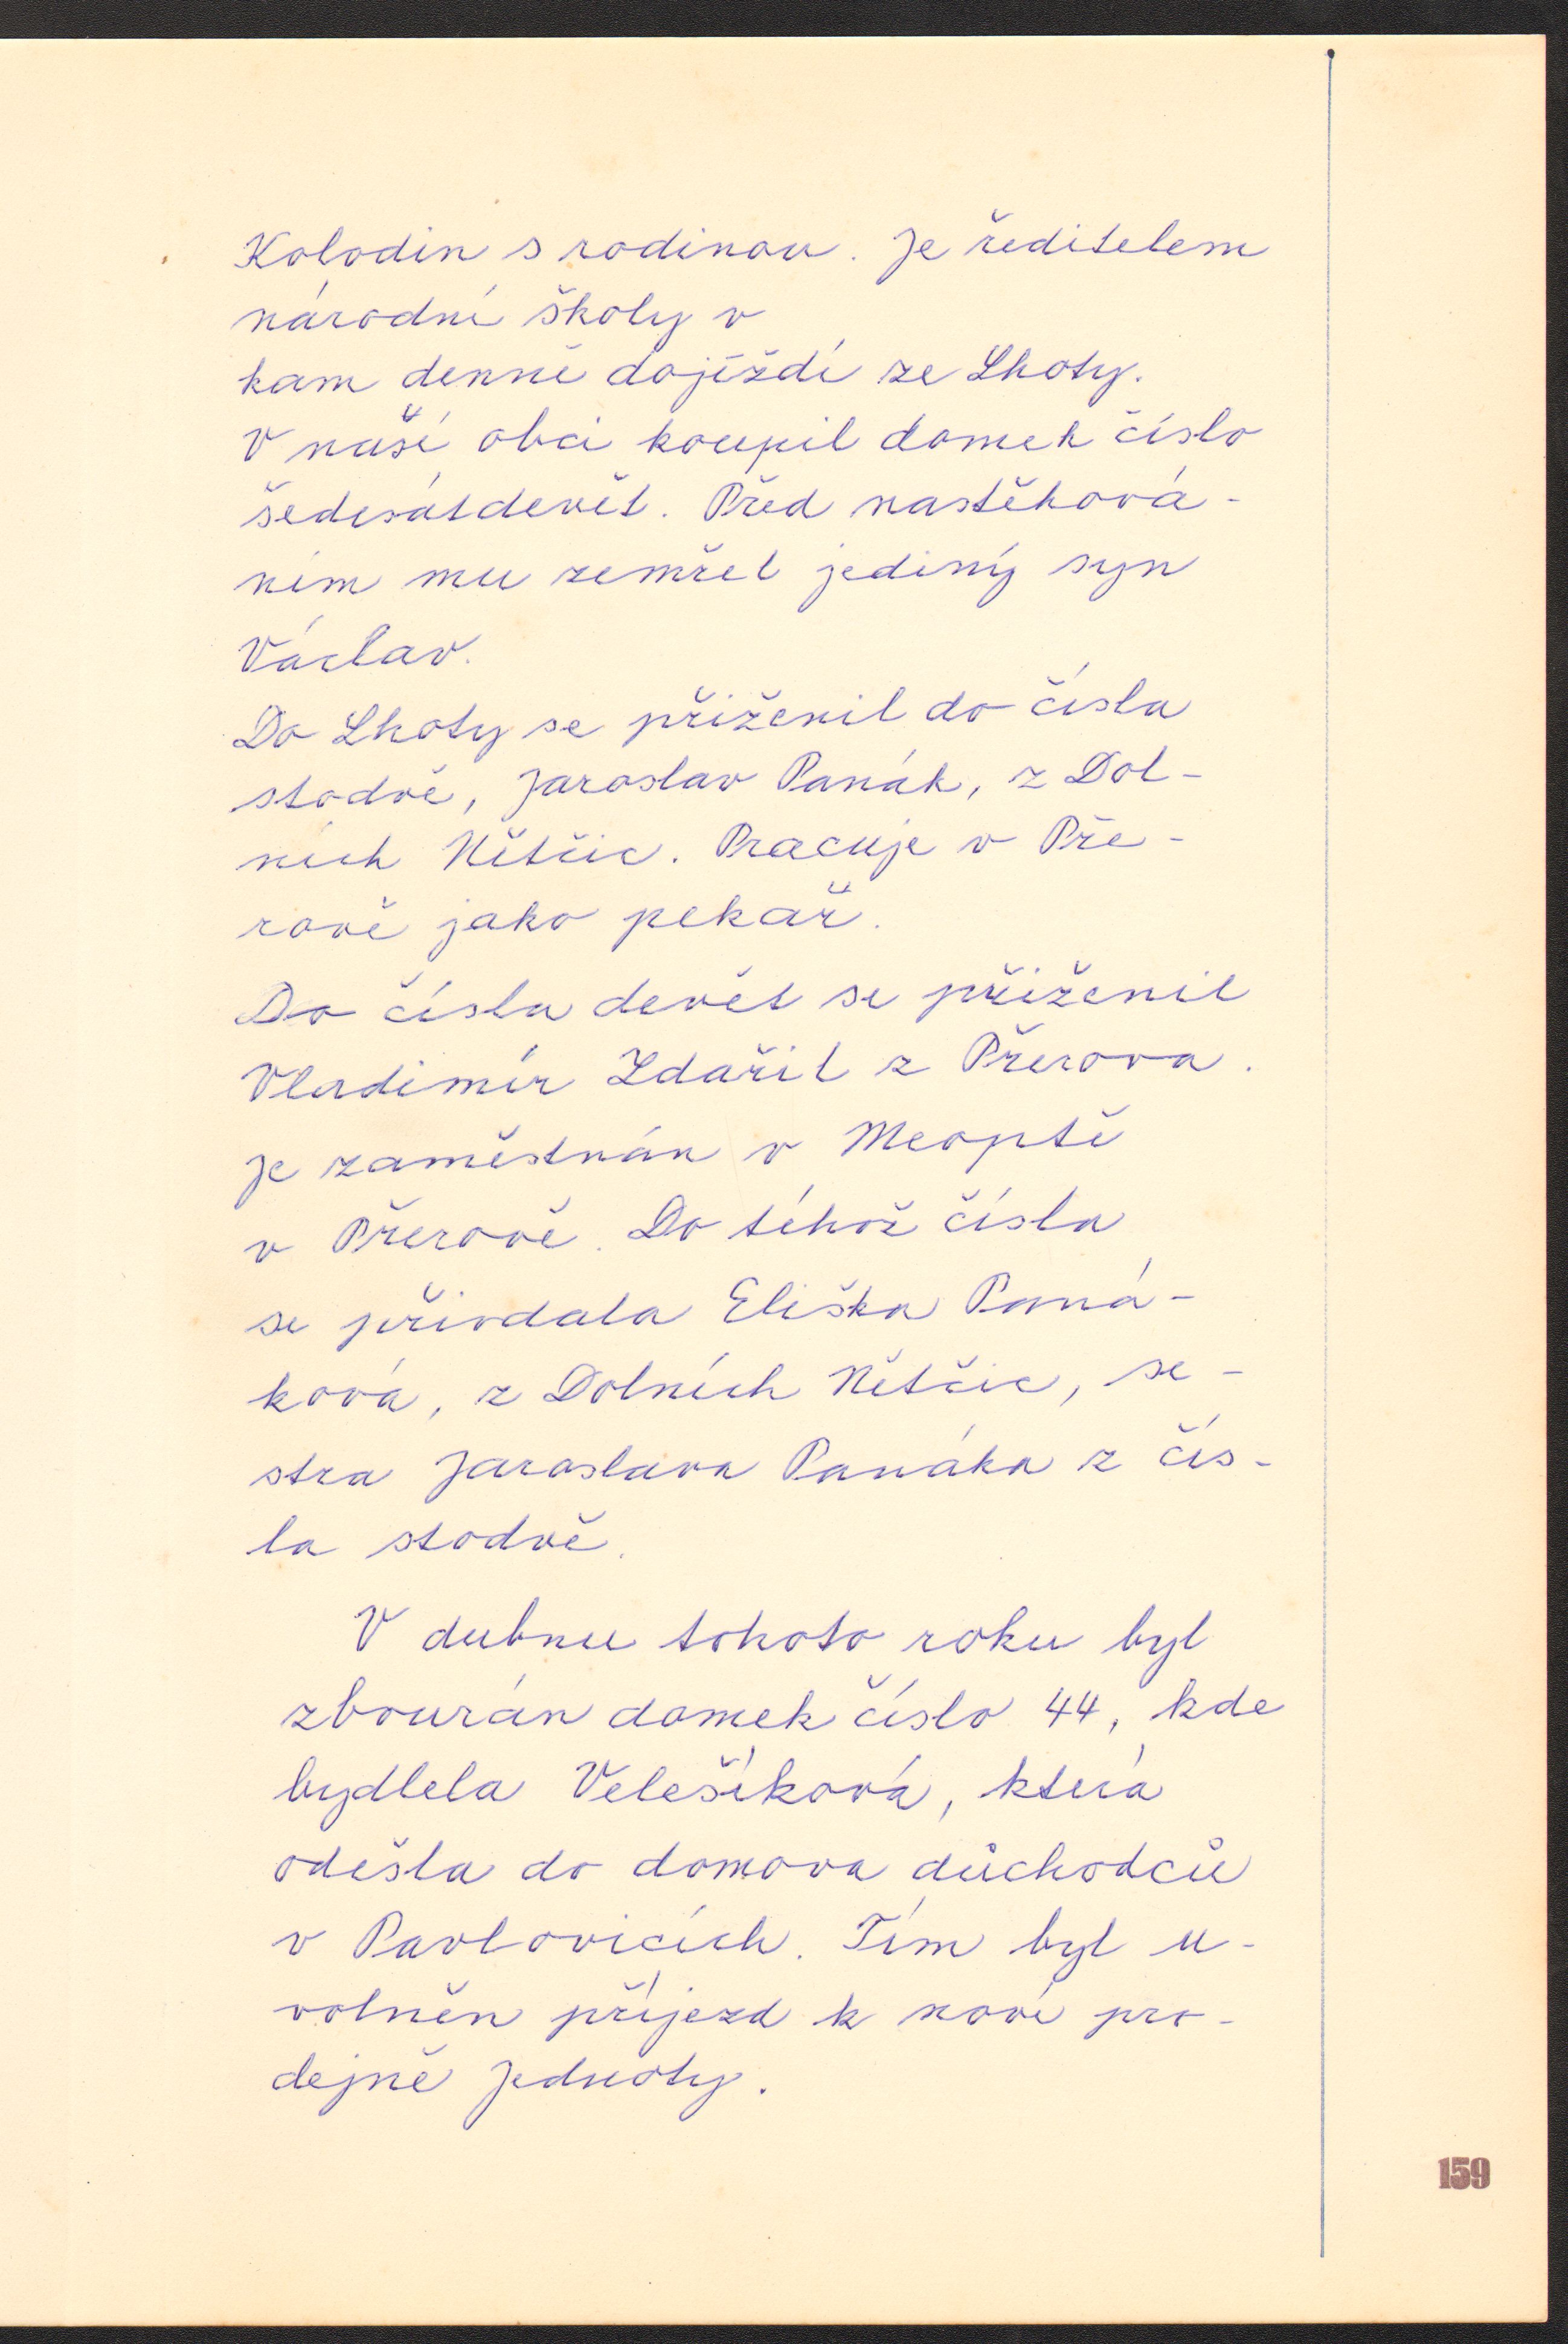 Kolodin s rodinou. Je ředitelem
národní školy v
kam denně dojíždí ze Lhoty.
V naší obci koupil domek číslo
šedesátdevět. Před nastěhová-
ním mu zemřel jediný syn
Václav.
Do Lhoty se přiženil do čísla
stodvě, Jaroslav Panák, z Dol-
ních Nětčic. Pracuje v Pře-
rově jako pekař.
Do čísla devět se přiženil
Vladimír Zdařil z Přerova.
Je zaměstnán v Meoptě
v Přerově. Do téhož čísla
se přivdala Eliška Paná-
ková, z Dolních Nětčic, se-
stra Jaroslava Panáka z čís-
la stodvě.
V dubnu tohoto roku byl
zbourán domek číslo 44, kde
bydlela Velešíková, která
odešla do domova důchodců
v Pavlovicích. Tím byl u-
volněn příjezd k nové pro-
dejně Jednoty.
159